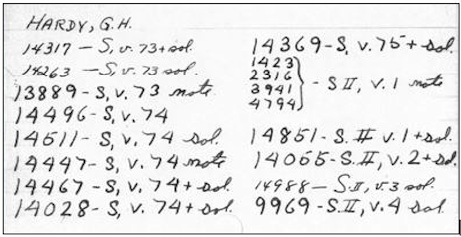 HARDY, G.H.
14317 - S, v. 73 + sol.
14263 - S, v. 73 sol
13889 - S, v. 73 note
14496 - S, v. 74
14511 - S, v. 74 sol.
14447 - S, v. 74 note
14467 - S, v. 74 + sol.
14028 - S, v. 74 + sol.
14369 - S, v. 75 + sol.
1423
2316
3941
4794
} - S II, v. 1 note
14851 - S. II v. 1 + sol.
14055 - S. II, v. 2 + sol.
14988 - S. II, v. 3 sol.
9969 - S. II, v. 4 sol